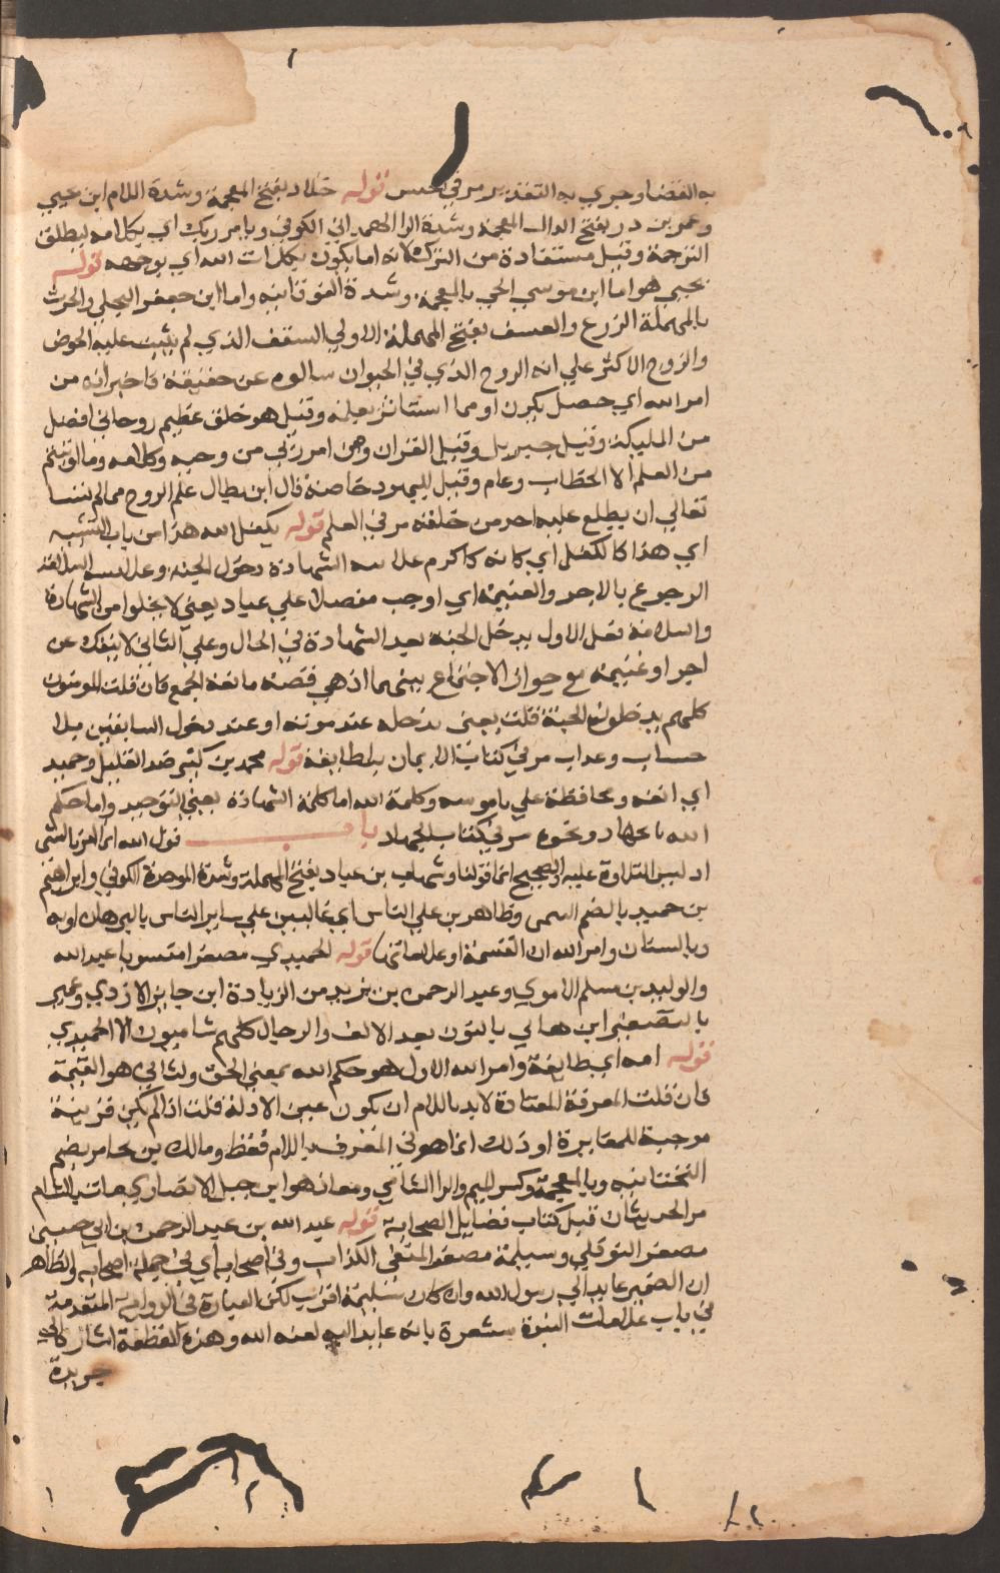 به القضا وجري به التقدير مر في الحيض قوله خلاد بفتح المعجمة وشدة اللام ابن يحيي
وعمر بن ذر بفتح الذال المعجمة وشدة الرا الهمداني الكوفي وبامر ربك اي بكلامه ليطلق
الترجمة وقيل مستفادة من التنزل لانه اما يكون بكلمات الله اي بوحيه قوله
يحيي هو اما ابن موسي الختي بالمعجمة وشدة الفوقانية واما ابن جعفر البجلي والحرث
بالمهملة الزرع والعسف بفتح المهملة الاولي السقف الذي لم يثبت عليه الخوض
والروح الاكثر علي انه الروح الذي في الحيوان سالوه عن حقيقته فاخبر انه من
امر الله اي حصل بكن او مما استاثر بعلمه وقيل هو خلق عظيم روحاني افضل
من المليكة وقيل جبريل وقيل القران ومن امر ربي من وحيه وكلامه وما اوتيتم
من العلم الا الخطاب وعام وقيل لليهود خاصة قال ابن بطال علم الروح مما لم يشا
تعالي ان يطلع عليه احد من خلقه مر في العلم قوله تكفل الله هذا من باب التشبيه
اي هذا كالكفل اي كانه كاكرم علا سه الشهادة دخول الجنة وعلا بسه السلامة
الرجوع بالاجر والغنيمة اي اوجب مفصلا علي عياد يعني لا يخلوا من الشهادة
والسلامة فعل الاول يدخل الجنة بعد الشهادة في الحال وعلي الثاني لا ينفك عن
اجر او غنيمة مع جواز الاجتماع بينهما اذ هي قضية مانعة الجمع فان قلت المومنون
كلهم يدخلون الجنة قلت يعني يدخله عند موته او عند دخول السابقين بلا
حساب وعذاب مر في كتاب الايمان بلطايفه قوله محمد بن كثير ضد القليل وحميه
اي انفة ومحافظة علي ناموسه وكلمة الله اما كلمة الشهادة يعني التوحيد واما حكم
الله بالجهاد ونحوه مر في كتاب الجهاد باب قول الله انما امرنا لشي
اد ليس التلاوة عليه اذ الصحيح انما قولنا وشهاب بن عباد بفتح المهملة وشدة الموحدة الكوفي وابراهيم
بن حميد بالضم السمى وظاهرين علي الناس اي غالبين علي ساير الناس بالبرهان او به
وبالسنان وامر الله ان القيمة او علاماتها قوله الحميدي مصغرا منسوبا عبد الله
والوليد بن مسلم الاموي وعبد الرحمن بن يزيد من الزيادة ابن جابر الازدي وعمير
بالتصغير ابن هاني بالنون بعد الالف والرجال كلهم شاميون الا الحميدي
قوله امه اي طايفة وامر الله الاول هو حكم الله يعني الحق والثاني هو القيمة
فان قلت المعرفة المعتادة لابد باللام ان يكون عين الاولة قلت اذا لم يكن قرينة
موجبة للمغايرة او ذلك انما هو في المعرف باللام فقط ومالك بن يخامر بضم
التحتانية وبالمعجمة وكسر الميم والرا الشامي ومعاذ هو ابن جبل الانصاري مات بالشام
مر الحديثان قبل كتاب فضايل الصحابة قوله عبد الله بن عبد الرحمن بن ابي حسين
مصغر النوفلي وسيلمة مصغر المتنبي الكذاب وفي اصحابه اي في جملة اصحابه والظاهر
ان الضمير عايد الي رسول الله وان كان سيلمة اقرب لكن العبارة في الرواية المتقدمة
في باب علامات النبوة مشعرة بانه عايد اليه لعنه الله وهذه القطعة اشار كالي
جريدة